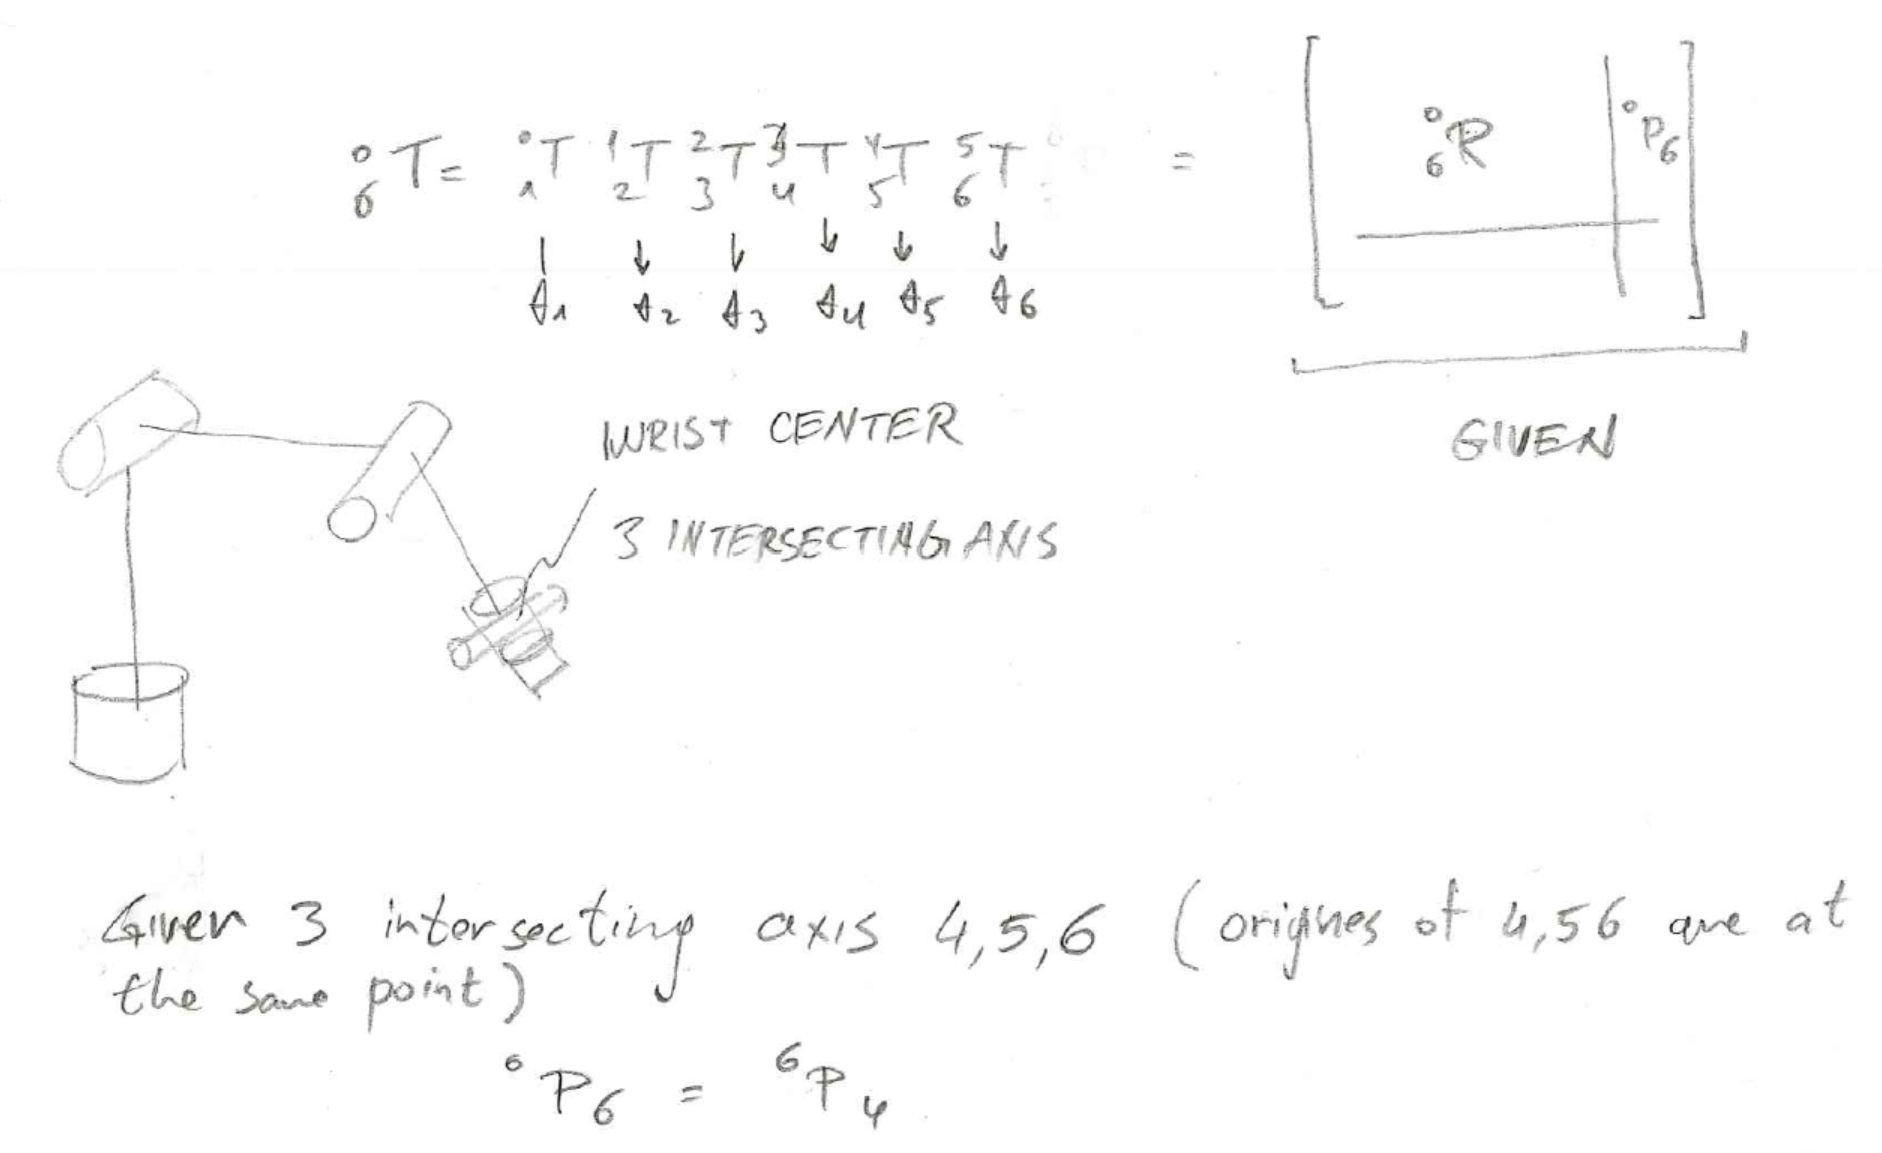 ⁰₆T = ⁰₁T ¹₂T ²₃T ³₄T ⁴₅T ⁵₆T = [ ⁰₆R | ⁰P₆ ]
↓ ↓ ↓ ↓ ↓
θ₁ θ₂ θ₃ θ₄ θ₅ θ₆
GIVEN
WRIST CENTER
3 INTERSECTING AXIS
Given 3 intersecting axis 4,5,6 (origines of 4,56 are at
the same point)
⁰P₆ = ⁶P₄